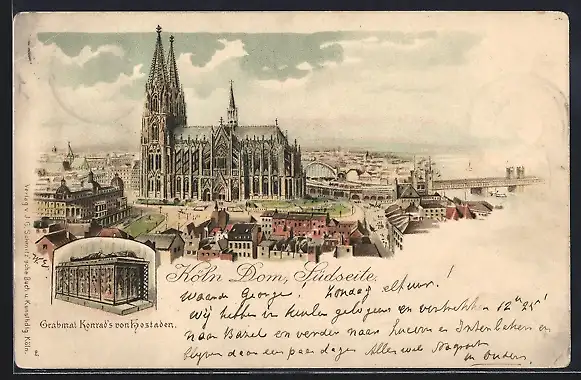 Köln Dom, Südseite.
Waarde George. Zondag elf uur!
Wij hebben in Keulen gelogeerd en vertrekken 12 u 25'
naar Bazel en verder naar Luzern en Interlaken en
blijven daar een paar dagen Alles wel
in orden.
Grabmal Konrad's von Hostaden.
Verlag v. J. G. Schmitz'sche Buch u. Kunsthdlg Köln.